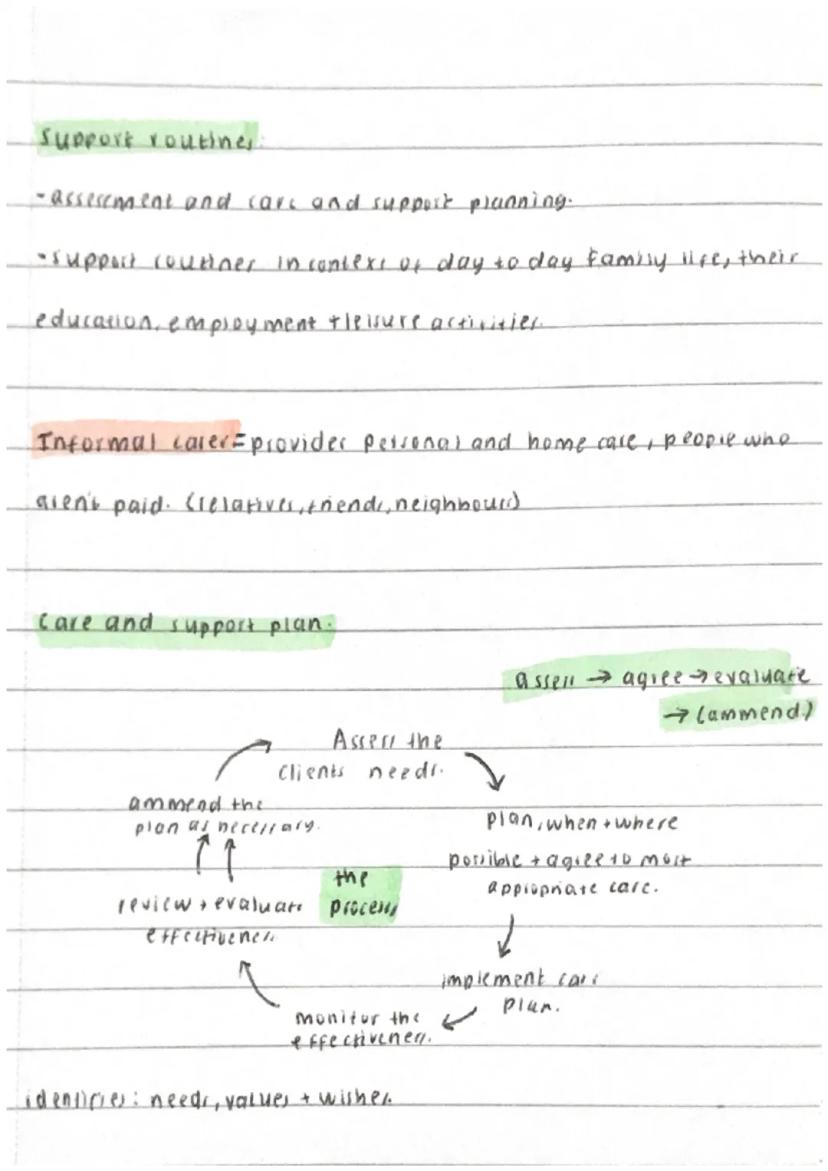 Support routines.
-assessment and care and support planning.
-support routines in context of day to day family life, their
education, employment + leisure activities.
Informal carer = provides personal and home care, people who
aren't paid. (relatives, friends, neighbours)
Care and support plan.
assess → agree → evaluate
→ (ammend)
Assess the
clients needs.
plan, when + where
possible + agree to most
appropriate care.
implement care
plan.
monitor the
effectiveness.
review + evaluate
effectiveness
ammend the
plan as necessary.
the
process
identifies: needs, values + wishes.